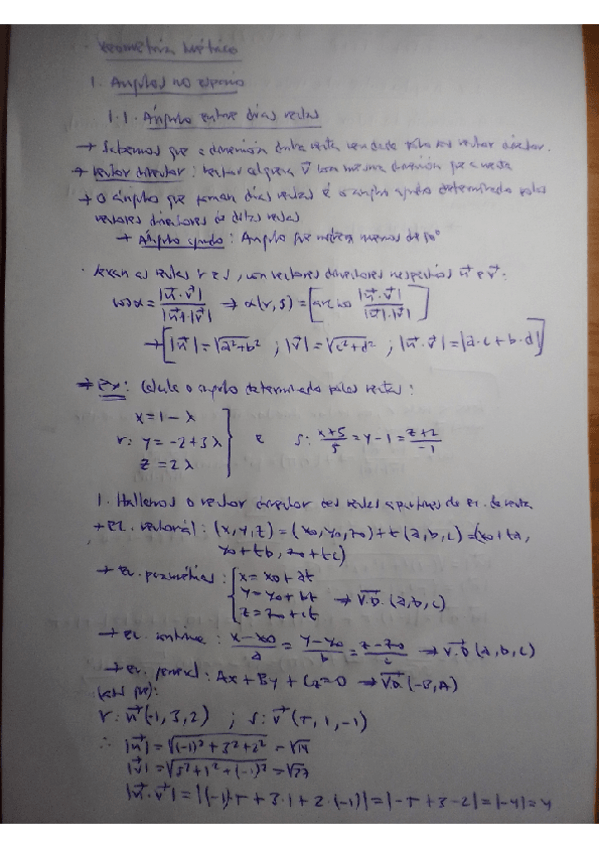 Xeometría Métrica
1. Ángulos no espacio
1.1. Ángulo entre dúas rectas
→ Sabemos que a dirección dunha recta ven dada polo seu vector director.
→ Vector director: vector calquera v⃗ coa mesma dirección que a recta
→ O ángulo que forman dúas rectas é o ángulo agudo determinado polos
vectores directores de ditas rectas
→ Ángulo agudo: Ángulo que mide menos de 90°
· Sexan as rectas r e s, con vectores directores respectivos u⃗ e v⃗:
cos α = |u⃗·v⃗| / |u⃗|·|v⃗| ⇒ α(r,s) = [arc cos |u⃗·v⃗| / |u⃗|·|v⃗|]
→ [|u⃗| = √a²+b² ; |v⃗| = √c²+d² ; |u⃗·v⃗| = |a·c+b·d|]
⇒ Ex: Calcula o ángulo determinado polas rectas:
x = 1-λ
r: y = -2+3λ } e s: x+5/5 = y-1 = z+2/-1
z = 2λ
1. Hallamos o vector director das rectas a partir da ec. da recta
→ Ec. vectorial: (x,y,z) = (x0,y0,z0)+t(a,b,c) = (x0+ta,
y0+tb, z0+tc)
→ Ec. paramétricas: { x = x0+at
y = y0+bt → V.D. (a,b,c)
z = z0+ct
→ Ec. continua: x-x0/a = y-y0/b = z-z0/c → V.D (a,b,c)
→ Ec. general: Ax+By+C=0 → V.D. (-B,A)
r: u⃗(-1,3,2) ; s: v⃗(5,1,-1)
∴ |u⃗| = √(-1)²+3²+2² = √14
|v⃗| = √5²+1²+(-1)² = √27
|u⃗·v⃗| = |(-1)·5+3·1+2·(-1)| = |-5+3-2| = |-4| = 4